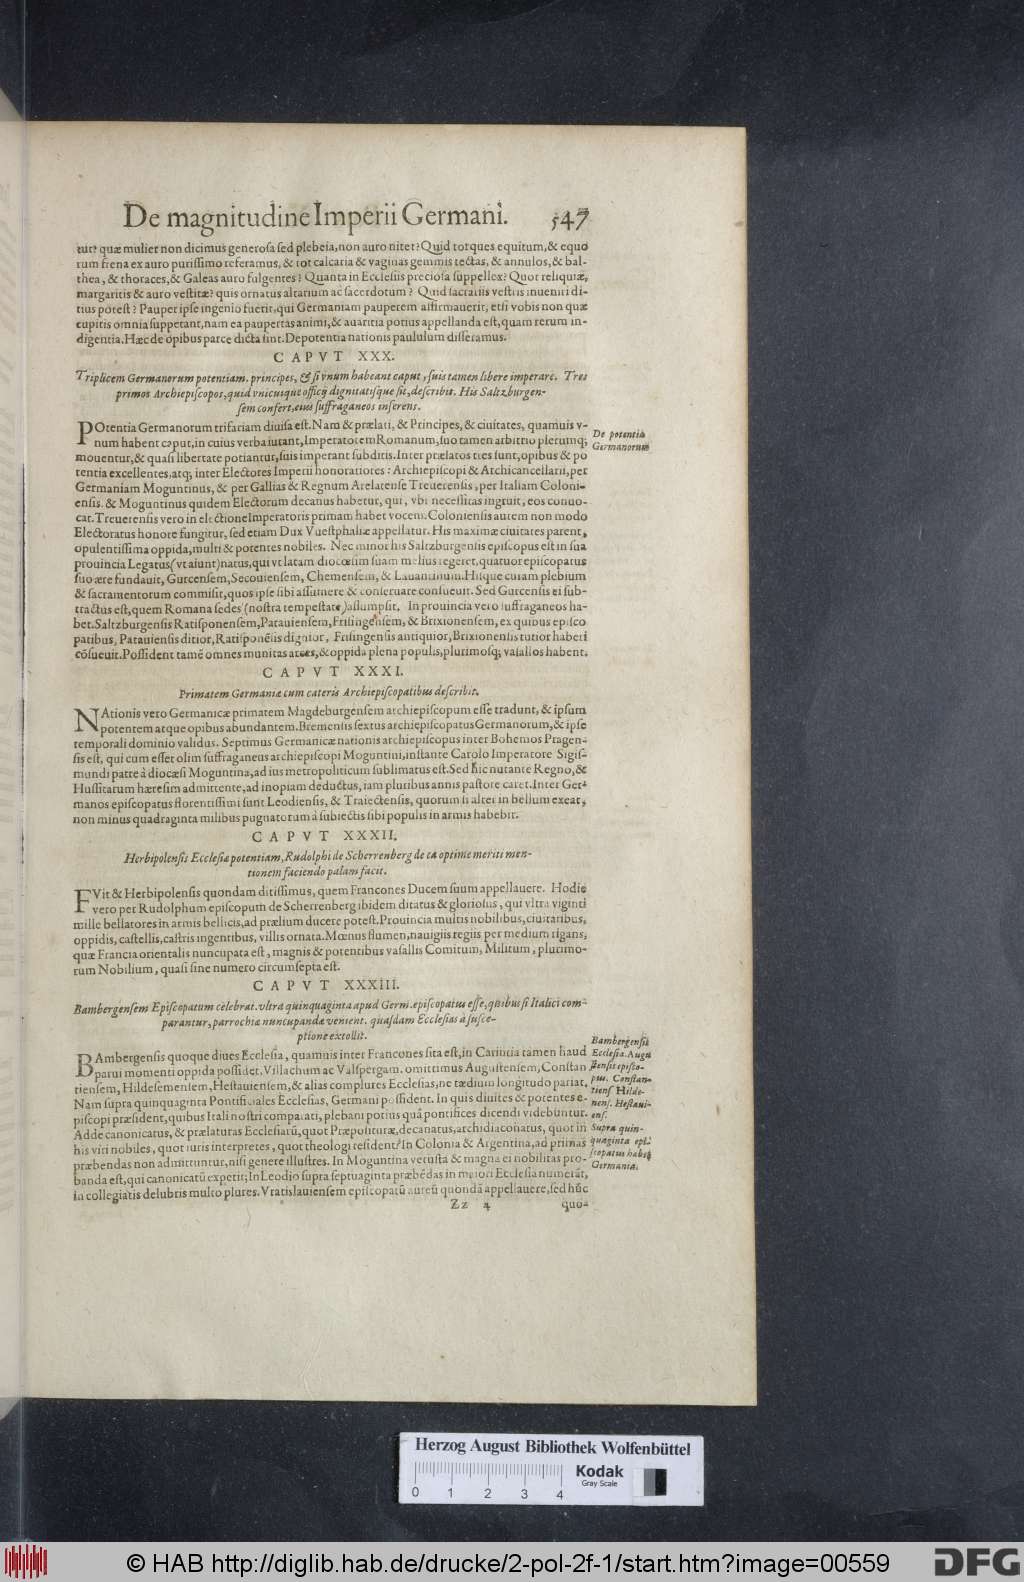 De magnitudine Imperii Germani. 547
tur? quæ mulier non dicimus generosa sed plebeia, non auro nitet? Quid torques equitum, & equo
rum frena ex auro purissimo referamus, & tot calcaria & vaginas gemmis tectas, & annulos, & bal-
thea, & thoraces, & Galeas auro fulgentes? Quanta in Ecclesiis preciosa suppellex? Quot reliquiæ,
margaritis & auro vestitæ? quis ornatus altarium ac sacerdotum? Quid sacrariis vestris inueniri di-
tius potest? Pauper ipse ingenio fuerit, qui Germaniam pauperem affirmauerit, etsi vobis non quæ
cupitis omnia suppetant, nam ea paupertas animi, & auaritia potius appellanda est, quam rerum in-
digentia. Hæc de opibus parce dicta sint. De potentia nationis paululum disseramus.
CAPVT XXX.
Triplicem Germanorum potentiam, principes, & si vnum habeant caput, suis tamen libere imperare. Tres
primos Archiepiscopos, quid vnicuique officij dignitatisque sit, describit. His Saltzburgen-
sem confert, eius suffraganeos inserens.
POtentia Germanorum trifariam diuisa est. Nam & prælati, & Principes, & ciuitates, quamuis v-
num habent caput, in cuius verba iurant, Imperatorem Romanum, suo tamen arbitrio plerumq;
mouentur, & quasi libertate potiantur, suis imperant subditis. Inter prælatos tres sunt, opibus & po
tentia excellentes, atq; inter Electores Imperii honoratiores: Archiepiscopi & Archicancellarii, per
Germaniam Moguntinus, & per Gallias & Regnum Arelatense Treuerensis, per Italiam Coloni-
ensis. & Moguntinus quidem Electorum decanus habetur, qui, vbi necessitas ingruit, eos conuo-
cat. Treuerensis vero in electione Imperatoris primam habet vocem. Coloniensis autem non modo
Electoratus honore fungitur, sed etiam Dux Vuestphaliæ appellatur. His maximæ ciuitates parent,
opulentissima oppida, multi & potentes nobiles. Nec minor his Saltzburgensis episcopus est in sua
prouincia Legatus (vt aiunt) natus, qui vt latam diocœsim suam melius regeret, quatuor episcopatus
suo ære fundauit, Gurcensem, Secouiensem, Chemensem, & Lauantinum. Hisque curam plebium
& sacramentorum commisit, quos ipse sibi assumere & conseruare consueuit. Sed Gurcensis ei sub-
tractus est, quem Romana sedes (nostra tempestate) assumpsit. In prouincia vero suffraganeos ha-
bet Saltzburgensis Ratisponensem, Patauiensem, Frisingensem, & Brixionensem, ex quibus episco
patibus, Patauiensis ditior, Ratisponēsis dignior, Frisingensis antiquior, Brixionensis tutior haberi
cōsueuit. Possident tamē omnes munitas arces, & oppida plena populis, plurimosq; vasallos habent.
CAPVT XXXI.
Primatem Germaniæ cum cæteris Archiepiscopatibus describit.
NAtionis vero Germanicæ primatem Magdeburgensem archiepiscopum esse tradunt, & ipsum
potentem atque opibus abundantem. Bremensis sextus archiepiscopatus Germanorum, & ipse
temporali dominio validus. Septimus Germanicæ nationis archiepiscopus inter Bohemos Pragen-
sis est, qui cum esset olim suffraganeus archiepiscopi Moguntini, instante Carolo Imperatore Sigis-
mundi patre à diocæsi Moguntina, ad ius metropoliticum sublimatus est. Sed hic nutante Regno, &
Hussitarum hæresim admittente, ad inopiam deductus, iam pluribus annis pastore caret. Inter Ger-
manos episcopatus florentissimi sunt Leodiensis, & Traiectensis, quorum si alter in bellum exeat,
non minus quadraginta milibus pugnatorum à subiectis sibi populis in armis habebit.
CAPVT XXXII.
Herbipolensis Ecclesiæ potentiam, Rudolphi de Scherrenberg de ea optime meriti men-
tionem faciendo palam facit.
FVit & Herbipolensis quondam ditissimus, quem Francones Ducem suum appellauere. Hodie
vero per Rudolphum episcopum de Scherrenberg ibidem ditatus & gloriosus, qui vltra viginti
mille bellatores in armis bellicis, ad prælium ducere potest. Prouincia multis nobilibus, ciuitatibus,
oppidis, castellis, castris ingentibus, villis ornata. Mœnus flumen, nauigiis regiis per medium rigans,
quæ Francia orientalis nuncupata est, magnis & potentibus vasallis Comitum, Militum, plurimo-
rum Nobilium, quasi sine numero circumsepta est.
CAPVT XXXIII.
Bambergensem Episcopatum celebrat. vltra quinquaginta apud Germ. episcopatus esse, quibus si Italici com-
parantur, parrochiæ nuncupandæ venient. quasdam Ecclesias à susce-
ptione extollit.
BAmbergensis quoque diues Ecclesia, quamuis inter Francones sita est, in Carintia tamen haud
parui momenti oppida possidet, Villachum ac Valspergam. omittimus Augustensem, Constan
tiensem, Hildesemensem, Hestauiensem, & alias complures Ecclesias, ne tædium longitudo pariat.
Nam supra quinquaginta Pontificiales Ecclesias, Germani possident. In quis diuites & potentes e-
piscopi præsident, quibus Itali nostri comparati, plebani potius quā pontifices dicendi videbuntur.
Adde canonicatus, & prælaturas Ecclesiarū, quot Præpositūræ, decanatus, archidiaconatus, quot in
his viri nobiles, quot iuris interpretes, quot theologi resident? In Colonia & Argentina, ad primas
præbendas non admittuntur, nisi genere illustres. In Moguntina vetusta & magna ei nobilitas pro-
banda est, qui canonicatū expetit; In Leodio supra septuaginta præbēdas in maiori Ecclesia numerāt,
in collegiatis delubris multo plures. Vratislauiensem episcopatū aureū quondā appellauere, sed hūc
Zz 4 quo-
De potentia
Germanorum
Bambergensis
Ecclesia. Augu
stensis episco-
pus. Constan-
tiens. Hilde-
nens. Hestaui-
ens.
Supra quin-
quaginta epi-
scopatus habet
Germania.
Herzog August Bibliothek Wolfenbüttel
Kodak
Gray Scale
0 1 2 3 4
© HAB http://diglib.hab.de/drucke/2-pol-2f-1/start.htm?image=00559
DFG